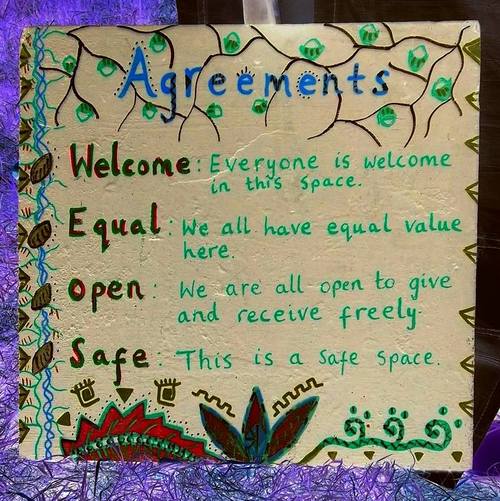 Agreements
Welcome: Everyone is welcome
in this space.
Equal: We all have equal value
here.
open: We are all open to give
and receive freely.
Safe: This is a safe space.